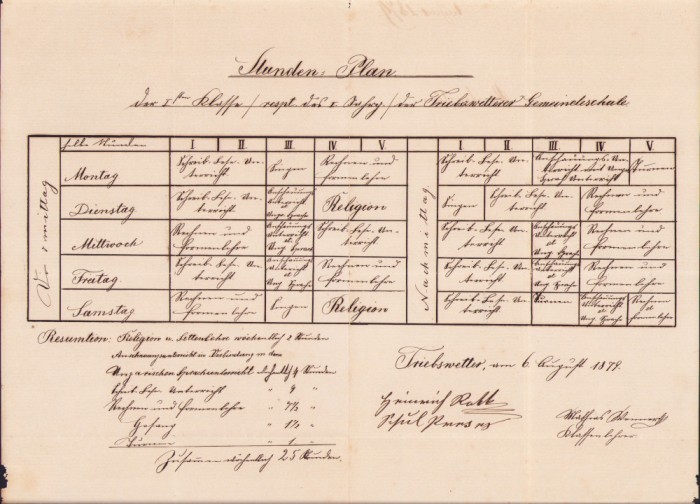 Stunden-Plan
der I ten Klasse / respt. des I. Jahrg / der Triebswetterer Gemeindeschule
halbe Stunden I II. III. IV V. I II. III. IV V.
Vormittag
Montag Schreib-Lese-Unterricht Singen Rechnen und Formenlehre
Dienstag Schreib-Lese-Unterricht Anschauungs Unterricht u. Ung. Sprache Religion
Mittwoch Rechnen und Formenlehre Anschauungs Unterricht u. Ung. Sprache Schreib-Lese-Unterricht
Freitag Schreib-Lese-Unterricht Anschauungs Unterricht u. Ung. Sprache Rechnen und Formenlehre
Samstag Rechnen und Formenlehre Singen Religion
Nachmittag
Schreib-Lese-Unterricht Anschauungs-Unterricht und Ung. Sprach Unterricht Turnen
Singen Schreib-Lese-Unterricht Rechnen und Formenlehre
Schreib-Lese-Unterricht Anschauungs Unterricht u. Ung. Sprache Rechnen und Formenlehre
Schreib-Lese-Unterricht Anschauungs Unterricht u. Ung. Sprache Rechnen und Formenlehre
Schreib-Lese-Unterricht Turnen Anschauungs Unterricht u. Ung. Sprache Rechnen u. Formenlehre
Resumtion: Religion u. Sittenlehre wöchentlich 2 Stunden
Anschauungsunterricht in Verbindung m. dem
Ungarischen Sprachunterricht 4 Stunden
Schreib-Lese-Unterricht " 9 "
Rechnen und Formenlehre " 7½ "
Gesang " 1½ "
Turnen " 1 "
Zusammen wöhentlich 25 Stunden.
Triebswetter, am 6. August 1879.
Heinrich Rott
Schul Preses
Mathias
Klassenlehrer